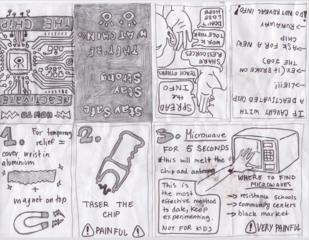 HOW TO
DEACTIVATE
THE CHIP
Stay Safe
Stay
Strong
THEY'RE
WATCHING
SPREAD
the
INFO
TEACH OTHERS
SHARE
RESSOURCES
IF CAUGHT WITH
A DEACTIVATED CHIP
→ LIE!!!
(EX. IT BROKE ON
THE JOB)
→ ASK FOR A NEW
CHIP
→ RUN AWAY
DO NOT REPEAT
INFO!
1.
For temporary
relief =
cover wrist in
aluminium
+
magnet on top
2.
TASER THE
CHIP
! PAINFUL !
3. Microwave
FOR 5 SECONDS
*this will melt the
chip and antenna
This is
the most
effective method
to date, keep
experimenting.
NOT FOR KIDS
WHERE TO FIND
MICROWAVES
→ resistance schools
→ community centers
→ black market
! VERY PAINFUL